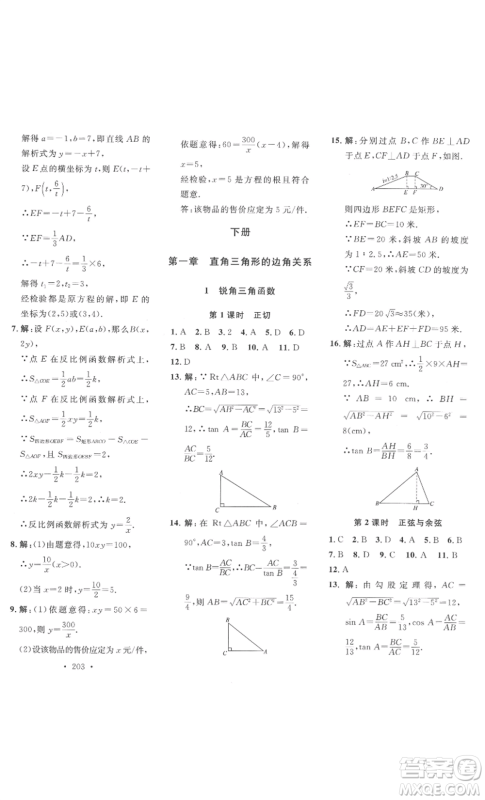 解得 a=-1，b=7，即直线 AB 的
解析式为 y=-x+7.
设 E 点的横坐标为 t，则 E(t，-t+
7)，F(t，6/t)，
∴EF=-t+7-6/t.
∵EF=AD，
∴-t+7-6/t=2.
经检验都符合题意.
7. 解：设 F(x，y)，则 B(x，
2y).
∵点 E 在反比例函数解析式上，
∴S△COE=1/2 ab=1/2 k.
∵点 F 在反比例函数解析式上，
∴S△AOF=1/2 xy=1/2 k.
∵S四边形OEBF=S矩形ABCO-S△COE
-S△AOF，且 S四边形OEBF=2，
∴2xy-1/2 k-1/2 xy=2.
∴2k-1/2 k-1/2 k=2. ∴k=2.
∴反比例函数解析式为 y=2/x.
8. 解：(1)由题意得，xy=10，
∴y=10/x (x>0).
(2)当 x=2 时，y=10/2=5.
9. 解：(1)依题意得：xy=50×6=
300，则 y=300/x.
(2)设该物品的售价应定为 x 元/件，
• 203 •
依题意得：60=300/x (x-4)，解得
x=5，
经检验，x=5 是方程的根且符合
题意.
答：该物品的售价应定为 5 元/件.
下册
第一章 直角三角形的边角关系
1 锐角三角函数
第 1 课时 正切
1. A 2. C 3. A 4. A 5. D 6. D
7. B 8. B 9. C 10. A 11. D
12. D
13. 解：∵Rt△ABC 中，∠C=90°，
AC=5，AB=13，
∴BC=√(AB²-AC²)=12. ∴tan A=
BC/AC=12/5，tan B=AC/BC=5/12.
A
C
B
14. 解：∵Rt△ABC 中，∠C=
90°，
∵tan B=AC/BC=4/3，AC=3，∴BC=
9/4，∴AB=√(AC²+BC²)=15/4.
B
C
A
15. 解：分别过点 B、C 作 BE⊥AD
于 E，CF⊥AD 于 F，如图.
B C
i=1:2.5
30°
A
E F
D
则四边形 BEFC 是矩形，
∴BE=CF，EF=BC=4 米.
∵BE=20 米，斜坡 AB 的坡度为
1∶2.5，斜坡 CD 的坡度为
√3/3，∴AE=50 米，DF=20√3 米.
∴AD=AE+EF+FD=54+
20√3(米).
16. 解：作 AH⊥BC 于 H，
∵S△ABC=27 cm²，∴1/2×9×AH=
27，∴AH=6 cm.
∵AB=10 cm，∴BH=
√(AB²-AH²)=√(10²-6²)=
8(cm)，
∴tan B=AH/BH=6/8=3/4.
A
B
H
C
第 2 课时 正弦与余弦
1. C 2. B 3. C 4. D 5. A 6. A
7. B 8. D 9. A 10. B 11. B
12. A
13. 解：由勾股定理得，AC=
√(AB²-BC²)=√(13²-5²)=12，
sin A=BC/AB=5/13，cos A=AC/AB=
12/13，tan A=BC/AC=5/12.
答案圈
MXQE.COM